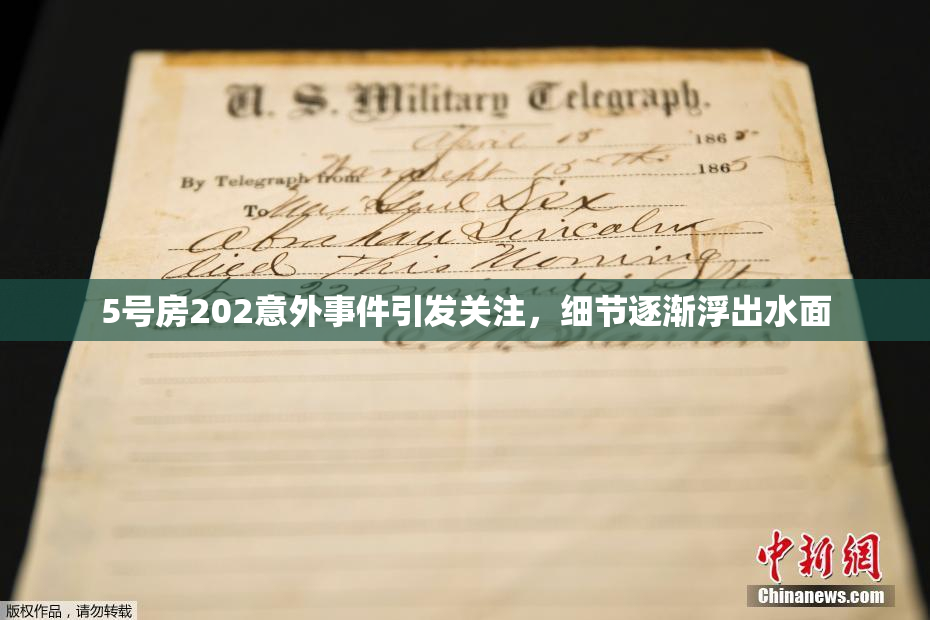 U. S. Military Telegraph.
April 15 1865
By Telegraph from War Dept 15th 1865
To Maj Genl Dix
Abraham Lincoln
died This Morning
at 22 minutes after
5号房202意外事件引发关注，细节逐渐浮出水面
E. M. Stanton
中新网
Chinanews.com
版权作品，请勿转载